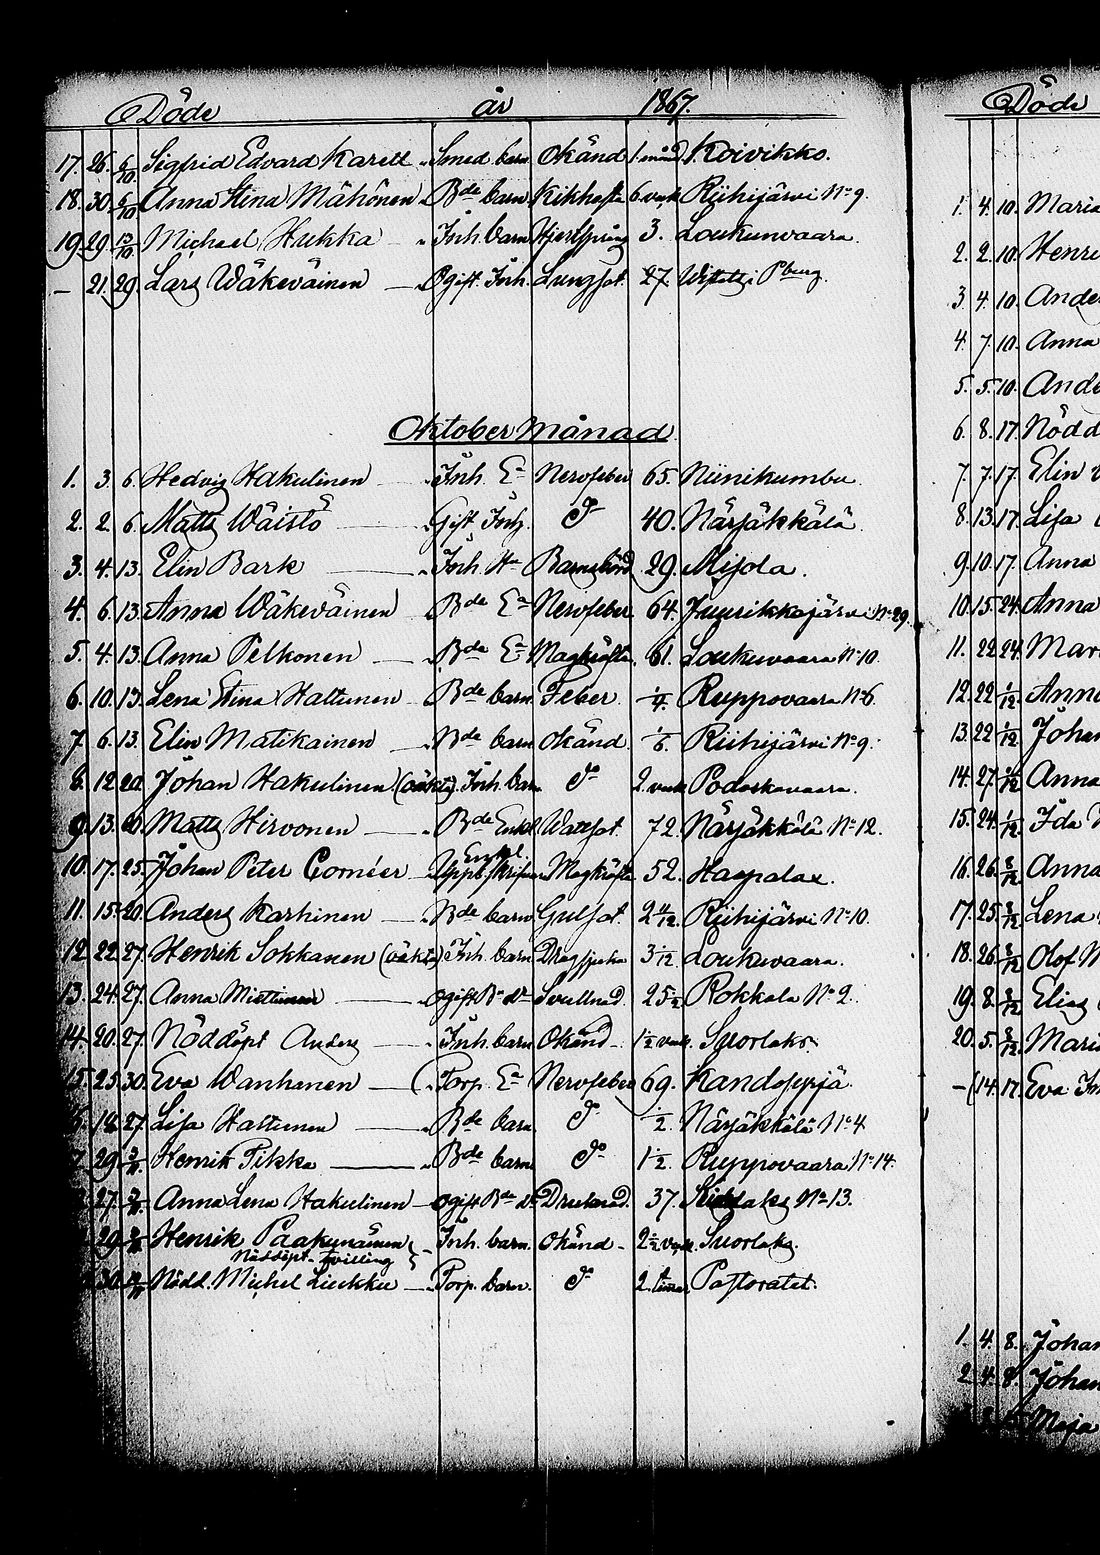 Döde år 1867.
17. 26. 6/10 Sigfrid Edvard Karell Smed barn Okänd 1 mån. Koivikko.
18. 30. 6/10 Anna Stina Mähönen Bde barn Kikhosta 6 vek Riihijärvi No 9.
19. 29. 13/10 Michael Hukka Inh. barn Hjertsprång 3. Loukunvaara.
— 21. 29. Lars Wäkeväinen Ogift Inh. Lungsot. 27.
Oktober Månad
1. 3. 6. Hedvig Hakulinen Inh. Ea Nervfeber 65. Niinikumbu
2. 2. 6. Matts Wäistö Gift Inh. do 40. Närsäkkälä
3. 4. 13. Elin Bark Inh. Ha Barnsbörd 29. Mijola.
4. 6. 13. Anna Wäkeväinen Bde Ea Nervfeber 64. Juurikkajärvi No 29.
5. 4. 13. Anna Pelkonen Bde Ea Magkräfta 61. Loukuvaara No 10.
6. 10. 13. Lena Stina Hattunen Bde barn Feber Ruppovaara No 6
7. 6. 13. Elin Matikainen Bde barn Okänd Riihijärvi No 9.
8. 12 20. Johan Hakulinen (oäkta) Inh. barn do 2 vek Podoskavaara.
9. 13. 20. Matts Hirvonen Bde Enkl. Wattsot. 72. Närsäkkälä No 12.
10. 17. 25. Johan Peter Cornéer Enkel Magkräfta 52. Haapalax.
11. 15. 20. Anders Karhinen Bde barn Gulsot. 2 4/12 Riihijärvi No 10.
12. 22. 27. Henrik Sokkanen (oäkta) Inh. barn Dragsjuka 3 1/12. Loukuvaara.
13. 24. 27. Anna Miettinen ogift Bde dr Svullnad. 25 1/2 Rokkala No 2.
14. 20. 27. Nöddöpt Anders Inh. barn Okänd 1 1/2 vek. Suorlaks.
15. 25. 30. Eva Wanhanen Torp. Ea Nervfeber 69. Kandosyrjä.
18. 27. Lisa Hattunen Bde barn do 1/2. Närsäkkälä No 4
29. Henrik Pikka Bde barn do 1 1/2. Ruppovaara No 14.
27. Anna Lena Hakulinen ogift Bde dr Drunknad. 37. No 13.
29. Henrik Paakunainen Inh. barn. Okänd 2 1/2 vek. Suorlaks.
Nöddöpt tvilling
30. Nödd. Michel Liukku Torp. barn. do 2. tima Pastoratet.
Döde
1. 4. 10. Maria
2. 2. 10. Henri
3. 4. 10. Ander
4. 7. 10. Anna
5. 5. 10. Ande
6. 8. 17. Nödd
7. 7. 17. Elin
8. 13. 17. Lisa
9. 10. 17. Anna
10. 15. 24. Anna
11. 22. 24. Mari
12. 22. 1/12 Anna
13. 22. 1/12 Johan
14. 27. 1/12 Anna
15. 24. 1/12 Ida
16. 26. 8/12 Anna
17. 25. 8/12 Lena
18. 26. 8/12 Olof
19. 8. 8/12 Elias
20. 5. 8/12 Mari
— 14. 17. Eva
1. 4. 8. Johan
2. 4. 8. Johan
Maja